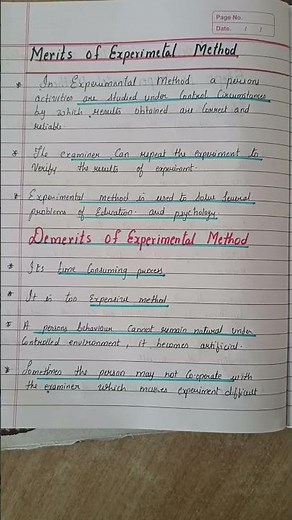 Page No.
Date. / /
Merits of Experimetal Method
* In Experimental Method a persons
activities are studied under Control Circumstances
by which results obtained are Correct and
reliable
* The examiner Can repeat the experiment to
Verify the results of experiment
* Experimental method is used to Solve Several
problems of Education and psychology
Demerits of Experimental Method
* Its time Consuming process
* It is too Expensive method
* A persons behaviour Cannot remain natural under
Controlled environment, it becomes artificial.
* Sometimes the person may not Co-operate with
the examiner which makes experiment difficult